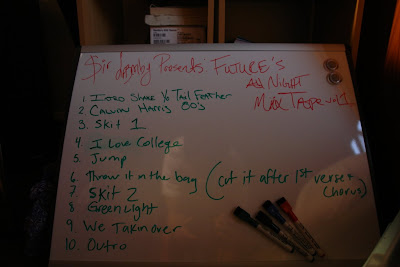 $ir dizmby Presents: FUTURE'S
All NIGHT
MixTape vol 1
1. Intro Shake Yo Tail Feather
2. Calvin Harris 80's
3. Skit 1
4. I Love College
5. Jump
6. Throw it in the bag (cut it after 1st verse + chorus)
7. Skit 2
8. Green Light
9. We Takin over
10. Outro